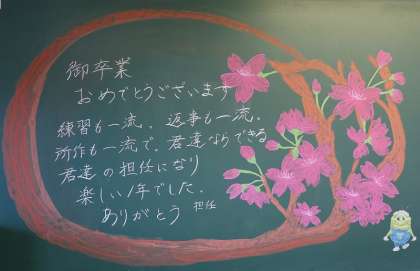 御卒業
おめでとうございます
練習も一流、返事も一流、
所作も一流で、君達ならできる
君達の担任になり
楽しい1年でした。
ありがとう 担任